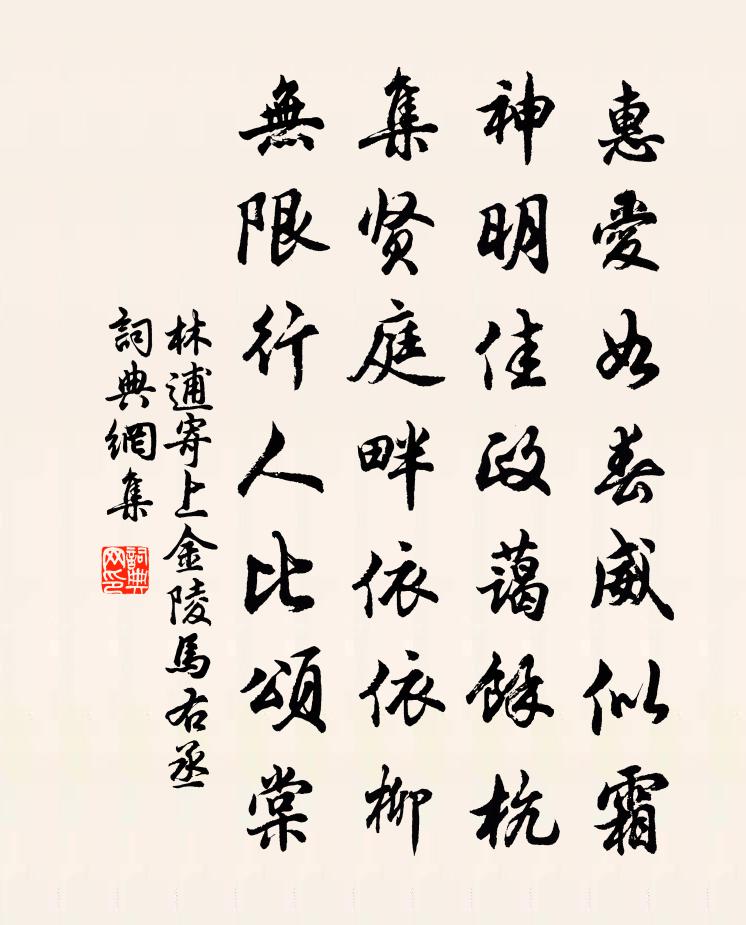 惠愛如春威似霜
神明佳政藹餘杭
集贤庭畔依依柳
無限行人比頌棠
林逋寄上金陵馬右丞
詞典網集
詞典網印